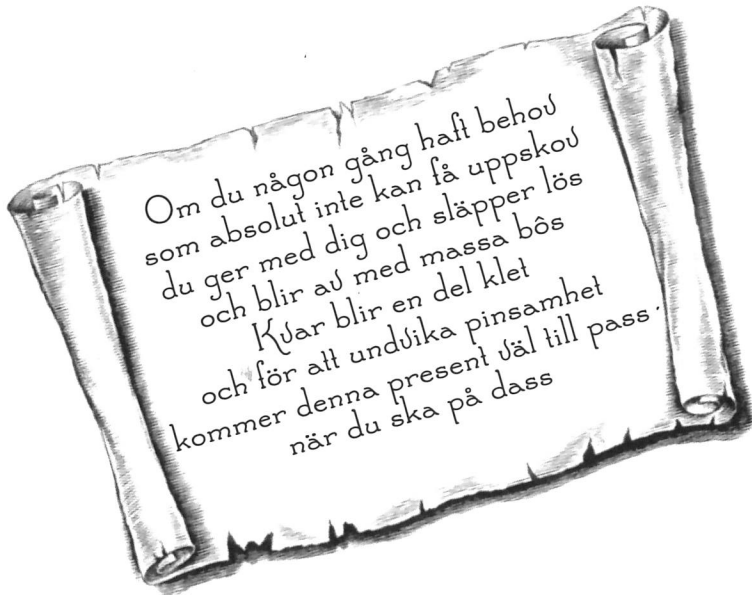 Om du någon gång haft behov
som absolut inte kan få uppskov
du ger med dig och släpper lös
och blir av med massa bôs
Kvar blir en del klet
och för att undvika pinsamhet
kommer denna present väl till pass
när du ska på dass